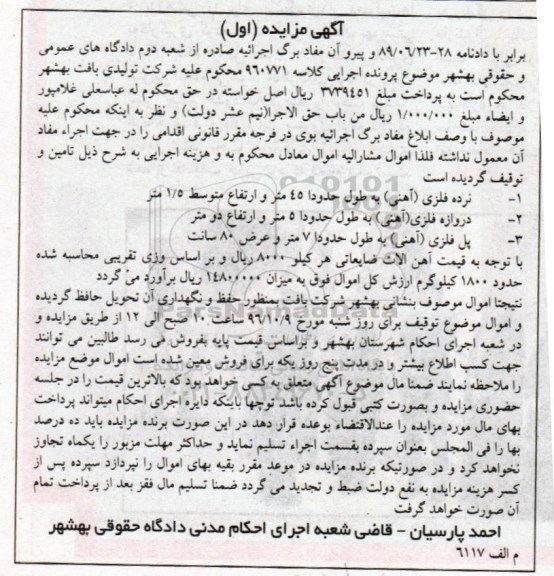 آگهی مزایده (اول)
برابر با دادنامه ۲۸-۸۹/۰۶/۲۳ و پیرو آن مفاد برگ اجرائیه صادره از شعبه دوم دادگاه های عمومی
و حقوقی بهشهر موضوع پرونده اجرایی کلاسه ۹۶۰۷۷۱ محکوم علیه شرکت تولیدی بافت بهشهر
محکوم است به پرداخت مبلغ ۳۷۳۹۴۵۱ ریال اصل خواسته در حق محکوم له عباسعلی غلامپور
و ایضاء مبلغ ۱/۰۰۰/۰۰۰ ریال من باب حق الاجرا(نیم عشر دولت) و نظر به اینکه محکوم علیه
موصوف با وصف ابلاغ مفاد برگ اجرائیه بوی در فرجه مقرر قانونی اقدامی را در جهت اجراء مفاد
آن معمول نداشته فلذا اموال مشارالیه اموال معادل محکوم به و هزینه اجرایی به شرح ذیل تامین و
توقیف گردیده است
۱- نرده فلزی (آهنی) به طول حدودا ۴۵ متر و ارتفاع متوسط ۱/۵ متر
۲- دروازه فلزی(آهنی) به طول حدودا ۵ متر و ارتفاع دو متر
۳- پل فلزی (آهنی) به طول حدودا ۷ متر و عرض ۸۰ سانت
با توجه به قیمت آهن الات ضایعاتی هر کیلو ۸۰۰۰ ریال و بر اساس وزی تقریبی محاسبه شده
حدود ۱۸۰۰ کیلوگرم ارزش کل اموال فوق به میزان ۱۴۸۰۰۰۰۰ ریال برآورد می گردد
نتیجتا اموال موصوف بنشانی بهشهر شرکت بافت بمنظور حفظ و نگهداری آن تحویل حافظ گردیده
و اموال موضوع توقیف برای روز شنبه مورخ ۹۶/۱۰/۹ ساعت ۱۰ صبح الی ۱۲ از طریق مزایده و
در شعبه اجرای احکام شهرستان بهشهر و براساس قیمت پایه بفروش می رسد طالبین می توانند
جهت کسب اطلاع بیشتر و در مدت پنج روز یکه برای فروش معین شده است اموال موضع مزایده
را ملاحظه نمایند ضمنا مال موضوع آگهی متعلق به کسی خواهد بود که بالاترین قیمت را در جلسه
حضوری مزایده و بصورت کتبی قبول کرده باشد توجها باینکه دایره اجرای احکام میتواند پرداخت
بهای مال مورد مزایده را عندالاقتضاء بوعده قرار دهد در این صورت برنده مزایده باید ده درصد
بها را فی المجلس بعنوان سپرده بقسمت اجراء تسلیم نماید و حداکثر مهلت مزبور را یکماه تجاوز
نخواهد کرد و در صورتیکه برنده مزایده در موعد مقرر بقیه بهای اموال را نپردازد سپرده پس از
کسر هزینه مزایده به نفع دولت ضبط و تجدید می گردد ضمنا تسلیم مال فقز بعد از پرداخت تمام
آن صورت خواهد گرفت
احمد پارسیان - قاضی شعبه اجرای احکام مدنی دادگاه حقوقی بهشهر
م الف ۶۱۱۷